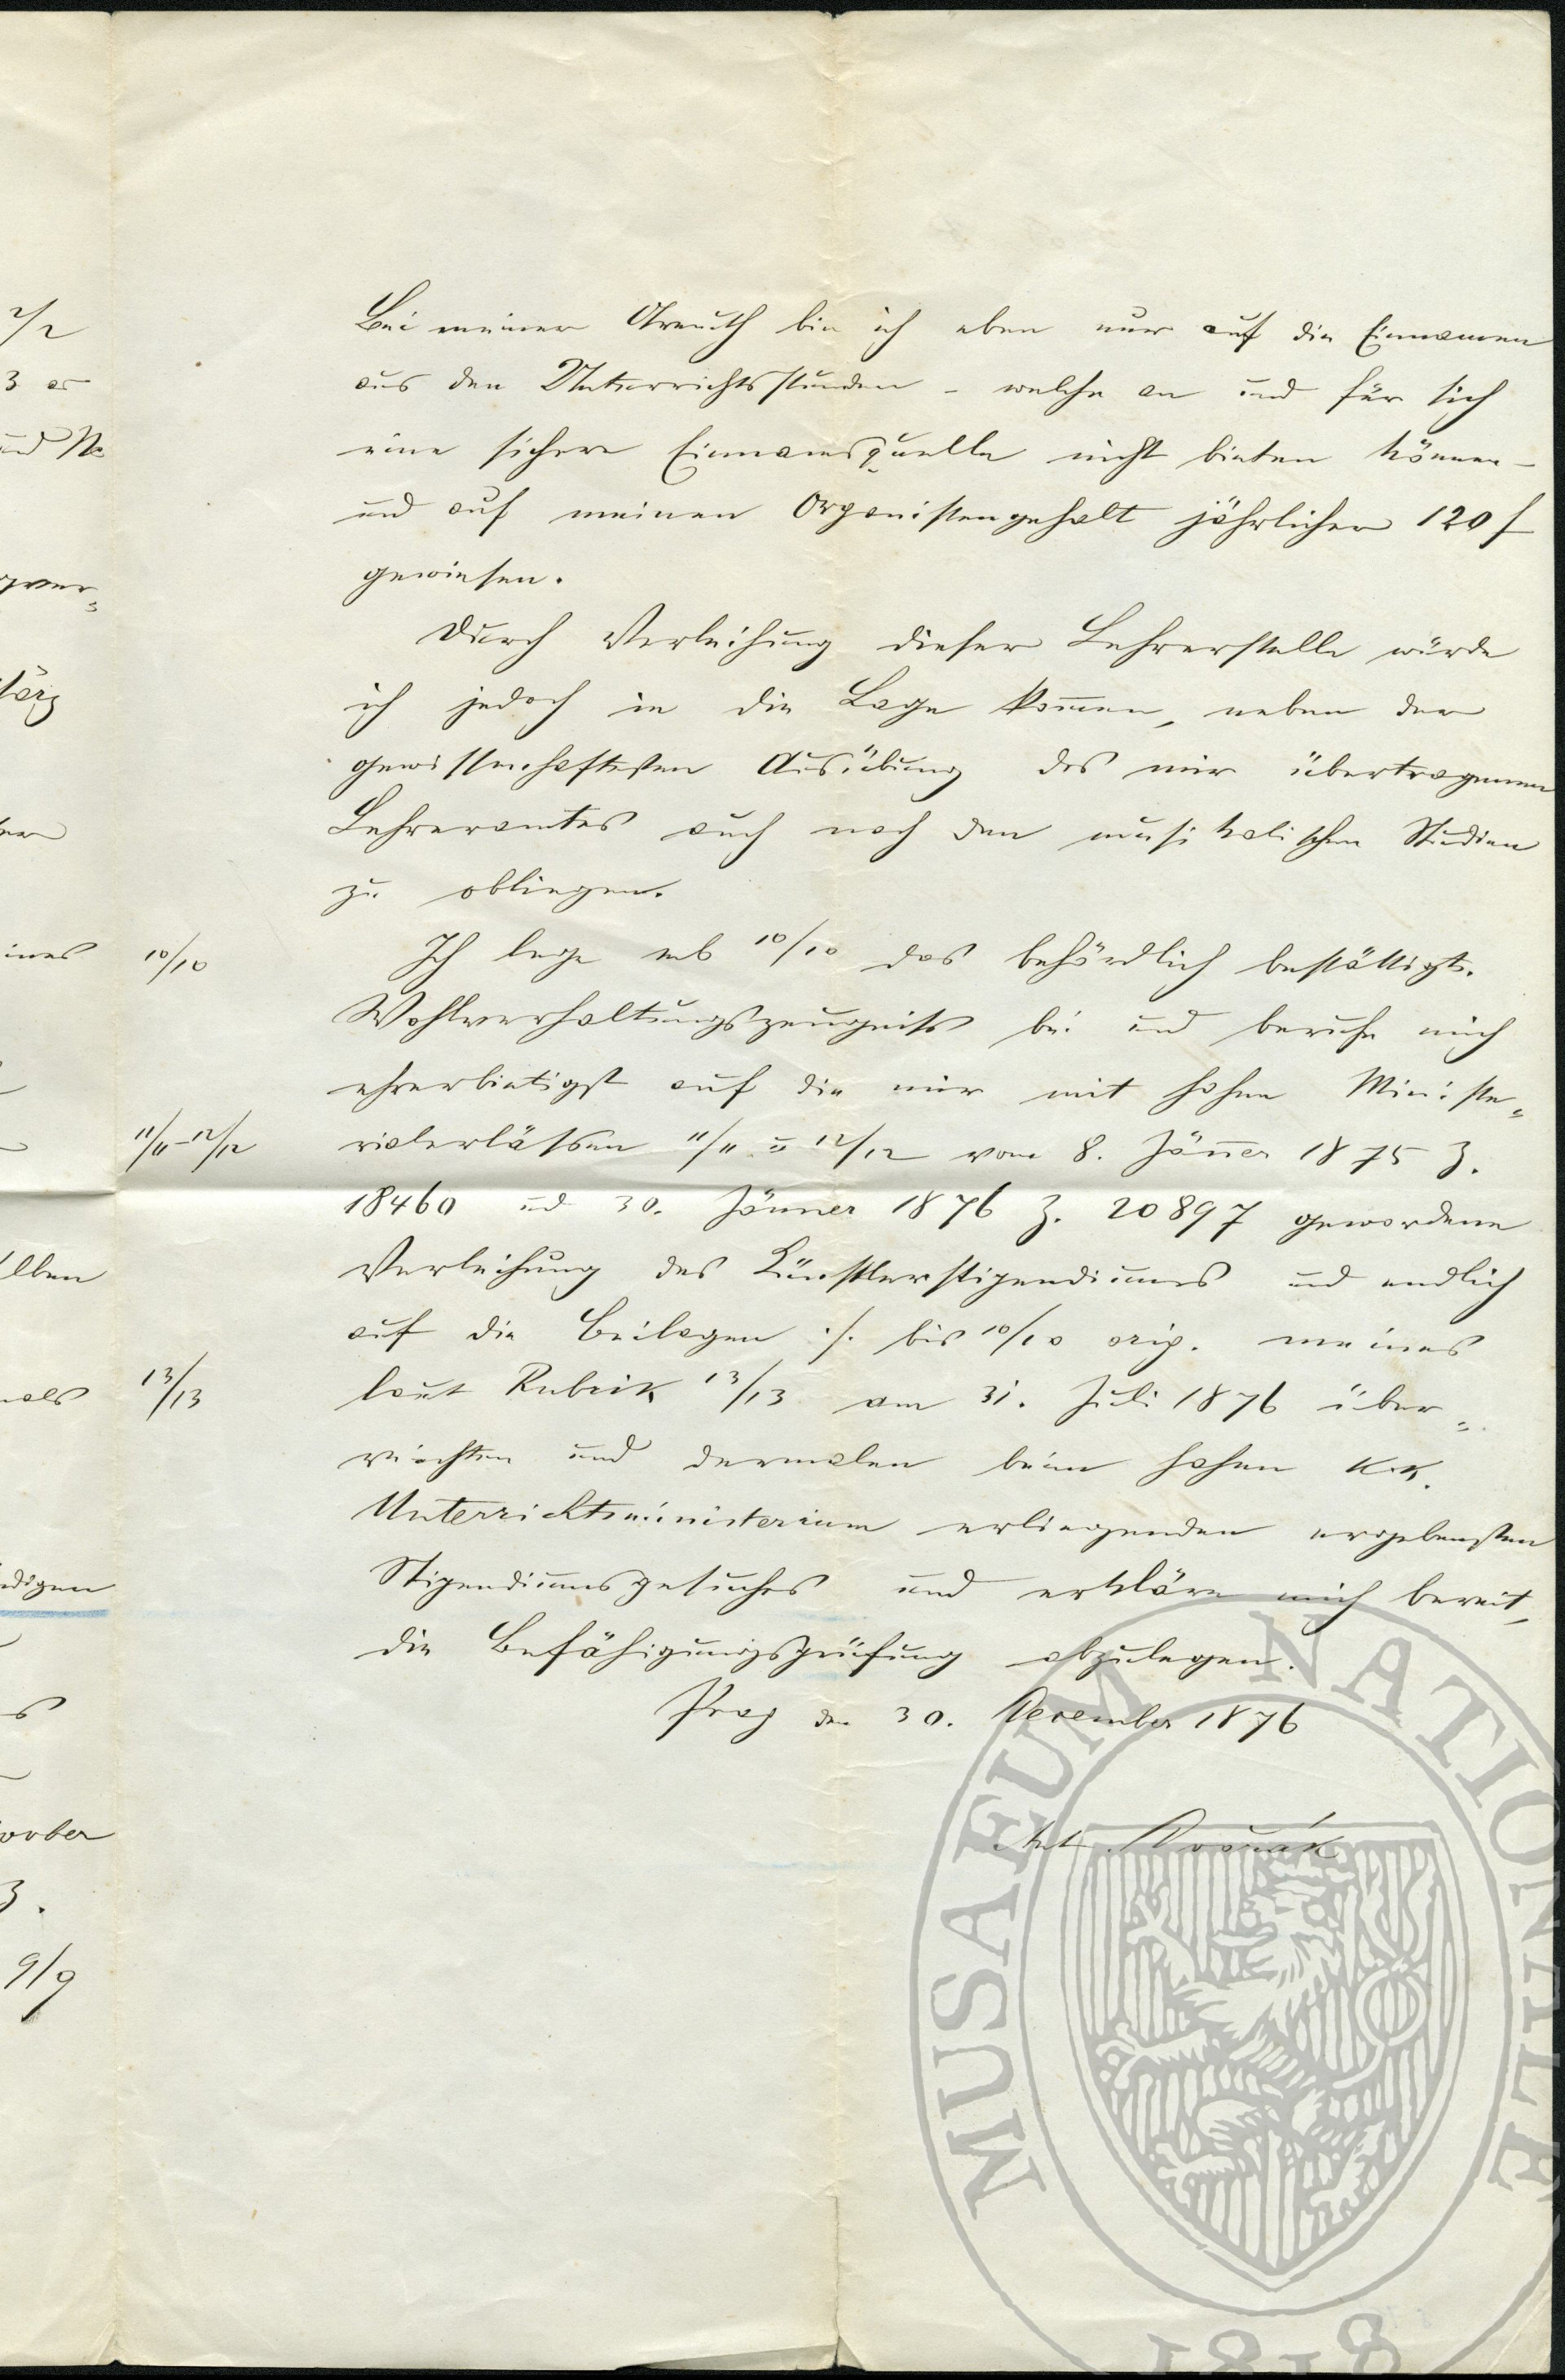 Bei meiner Armuth bin ich eben nur auf die Einnamen
aus den Unterrichtsstunden - welche an und für sich
eine sichere Einnamsquelle nicht bieten können -
und auf meinen Organistengehalt jährlicher 120 f
gewiesen.
Durch Verleihung dieser Lehrerstelle würde
ich jedoch in die Lage kom̄en, neben der
gewissenhaftesten Ausübung des mir übertragenen
Lehreramtes auch noch den musikalischen Studien
zu obliegen.
10/10 Ich lege sub 10/10 das behördlich bestättigte
Wohlverhaltungszeugniß bei und berufe mich
ehrerbietigst auf die mir mit hohen Ministe=
11/11-12/12 rialerläßen 11/11 u 12/12 vom 8. Jän̄er 1875 Z.
18460 und 30. Jänner 1876 Z. 20897 gewordene
Verleihung des Künstlerstipendiums und endlich
auf die Beilagen ·/. bis 10/10 orig. meines
13/13 laut Rubrik 13/13 am 31. Juli 1876 über=
reichten und dermalen beim hohen k.k.
Unterrichtsministerium erliegenden ergebensten
Stipendiumsgesuches und erkläre mich bereit,
die Befähigungsprüfung abzulegen.
Prag den 30. Dezember 1876
Ant Dvořák
2/2
3
und
ines
lben
als
digen
9/9
MUSAEUM NATIONALE
1818